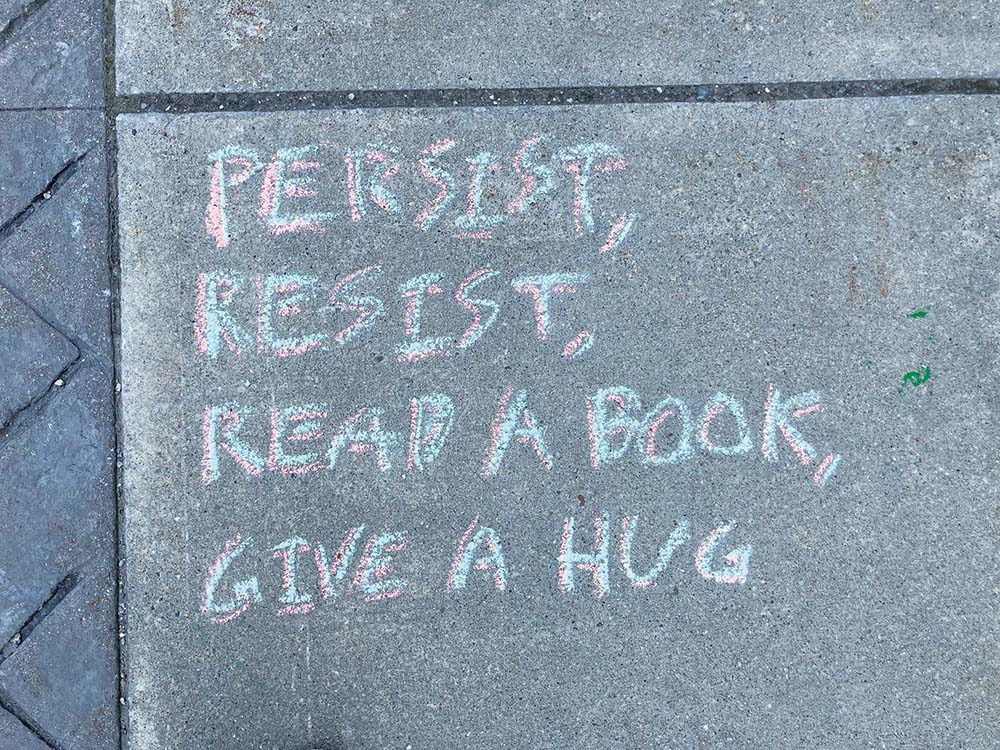 PERSIST,
RESIST,
READ A BOOK,
GIVE A HUG